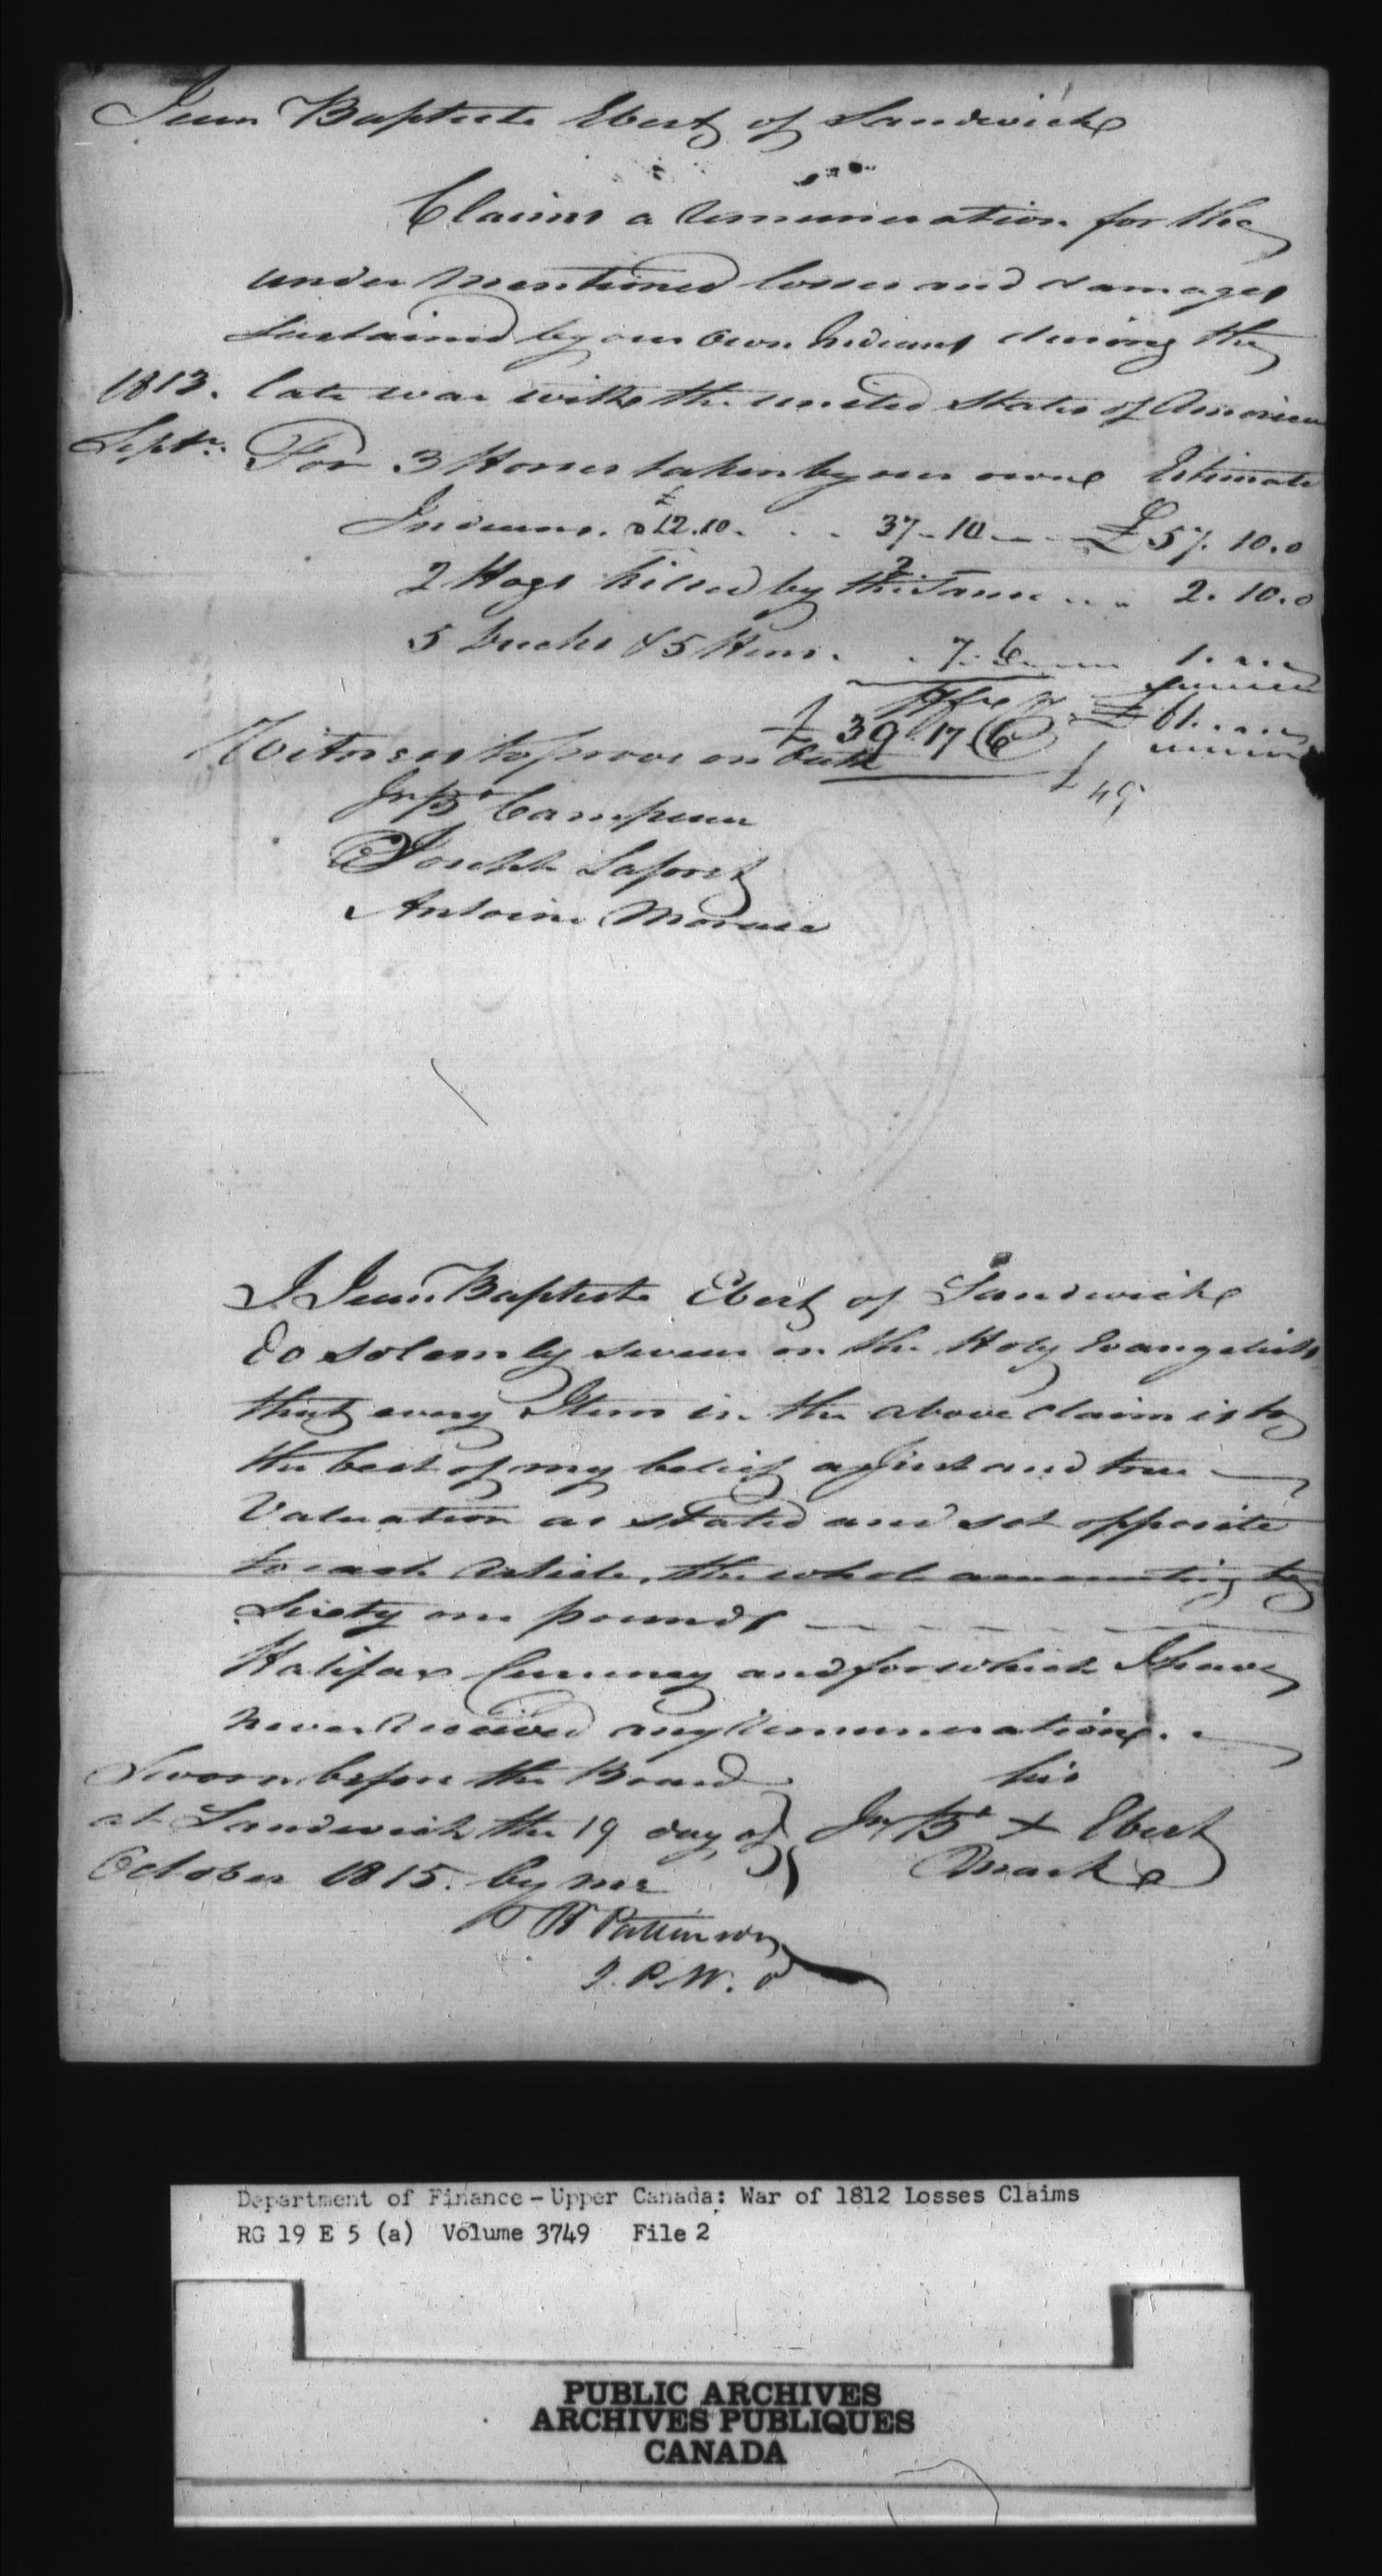 Jean Baptiste Ebert of Sandwich
Claims a remuneration for the
under mentioned losses and damages
sustained by our own Indians during the
1813. late war with the united States of America
Septr. For 3 Horses taken by our own Estimate
Indians. a £12.10. . . 37-10 — £57. 10. 0
2 Hogs killed by the Same ... 2. 10. 0
2
5 Ducks & 5 Hens. . 7. 6 1. ...
£ 61. ...
£ 39 17 6
Witnesses to prove on Oath
£ 49
Jn Bt Campeau
Joseph Laforet
Antoine Morass
I Jean Baptiste Ebert of Sandwich
do solemnly swear on the Holy Evangelists
that every Item in the above claim is to
the best of my belief a just and true
Valuation as stated and set opposite
to each article, the whole amounting to
Sixty one pounds
Halifax Currency and for which I have
never received any remuneration.
Sworn before the Board his
at Sandwich the 19 day of } Jn Bt X Ebert
October 1815. by me Mark
R Pattinson
J.P.W.d
Department of Finance - Upper Canada: War of 1812 Losses Claims
RG 19 E 5 (a) Volume 3749 File 2
PUBLIC ARCHIVES
ARCHIVES PUBLIQUES
CANADA